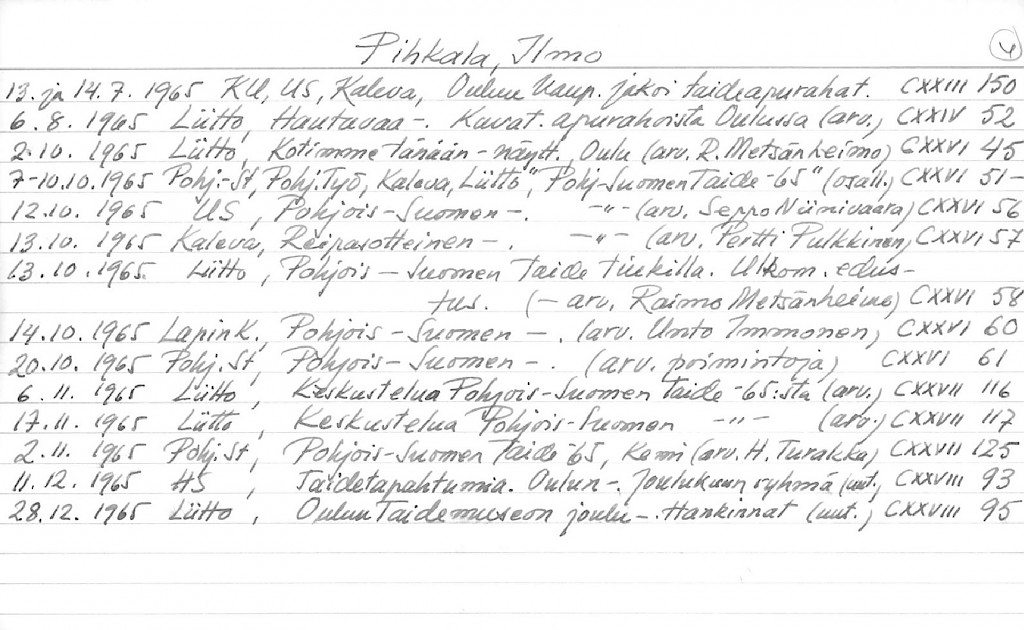 Pihkala, Ilmo
4
13. ja 14.7. 1965 KU, US, Kaleva, Oulun kaup. jakoi taideapurahat. CXXIII 150
6.8. 1965 Liitto, Hautavaa-. Kuvat. apurahoista Oulussa (arv.) CXXIV 52
2.10. 1965 Liitto, Kotimme tänään - näytt., Oulu (arv. R. Metsänheimo) CXXVI 45
7-10.10.1965 Pohj.-St, Pohj.Työ, Kaleva, Liitto, "Pohj-Suomen Taide -65" (osall.) CXXVI 51-
12.10. 1965 US, Pohjois-Suomen -. -"- (arv. Seppo Niinivaara) CXXVI 56
13.10. 1965 Kaleva, Reipasotteinen -. -"- (arv. Pertti Pulkkinen) CXXVI 57
13.10. 1965. Liitto, Pohjois - Suomen Taide tiukilla. Ulkom. edus-
tus. (- arv. Raimo Metsänheimo) CXXVI 58
14.10. 1965 Lapin K., Pohjois - Suomen - . (arv. Unto Immonen) CXXVI 60
20.10. 1965 Pohj. St, Pohjois - Suomen -. (arv. poimintoja) CXXVI 61
6.11. 1965 Liitto, Keskustelua Pohjois-Suomen Taide -65:stä (arv.) CXXVII 116
17.11. 1965 Liitto, Keskustelua Pohjois-Suomen -"- (arv.) CXXVII 117
2.11. 1965 Pohj. St, Pohjois-Suomen Taide -65, Kemi (arv. H. Turakka) CXXVII 125
11.12. 1965 HS, Taidetapahtumia. Oulun -. Joulukuun ryhmä (uut., CXXVIII 93
28.12. 1965 Liitto, Oulun Taidemuseon joulu-. Hankinnat (uut.) CXXVIII 95